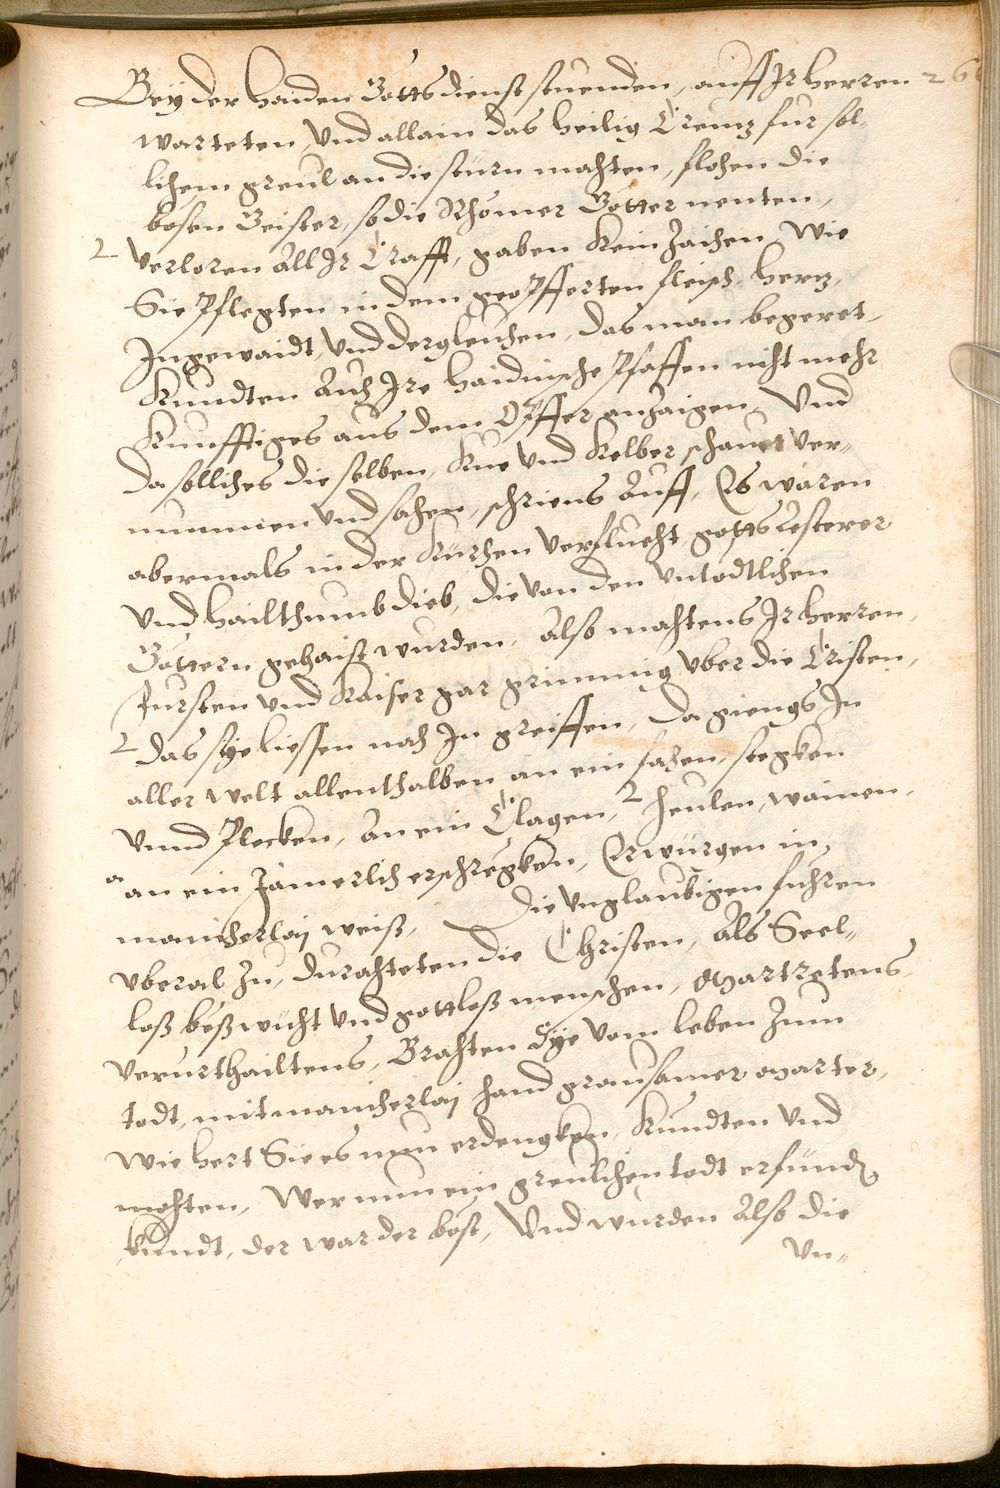 Bey der haiden Gottsdienst stuenden, auff Ir herren 26
warteten, Vnd allain das heilig Creutz fur sol-
lichem greul an die stürn machten, flohen die
bosen Geister, so die Rhömer Götter nenten,
verloren All Ir Crafft, gaben kein Zaichen, Wie
Sie Pflegten in dem geopfferten fleisch, hertz,
Ingewaidt, Vnd dergleichen, das man begeret,
Kundten Auch Ire haidnische Pfaffen nicht mehr
Kunfftiges aus dem Opffer anzaigen, Vnd
da solliches die selben, Kue Vnd Kelber schauer ver-
nummen Vnd sahen, schriens Auff, Es wären
abermals in der Kürchen Verflucht, gottslesterer
Vnd hailthumb dieb, die von den Vntodtlichen
Göttern gehaist wurden, Also machtens Ir herren,
fursten Vnd Kaiser gar grimmig vber die Cristen,
das sye liessen nach In greiffen, Da giengs In
aller Welt allenthalben an ein fahen, stegken
Vnnd Plecken, An ein Clagen, heulen, wainen,
an ein Jämerlich erschregken, Erwürgen in
mancherlaj weiß, Die Vnglaubigen fuhren
vberal Zu, durachteten die Christen, Als Seel-
loß bößwicht Vnd gottloß menschen, Martretens
Verurthailtens, Brachten Sye vom leben Zum
todt, mit mancherlaj hand grausamer marter,
Wie hert Sie es nun erdengken, Kundten Vnd
mochten, Wer nun ein greulichen todt erfunden
kundt, der war der böst, Vnd wurden Also die
Vn-